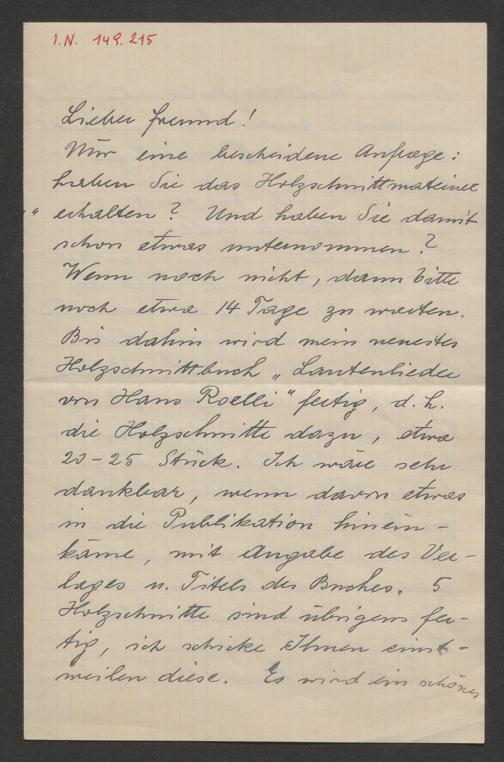 I.N. 149.215
Lieber Freund!
Nur eine bescheidene Anfrage:
haben Sie das Holzschnittmateriel
erhalten? Und haben Sie damit
schon etwas unternommen?
Wenn noch nicht, dann bitte
noch etwa 14 Tage zu warten.
Bis dahin wird mein neuestes
Holzschnittbuch „Lautenlieder
von Hans Roelli" fertig, d.h.
die Holzschnitte dazu, etwa
20-25 Stück. Ich wäre sehr
dankbar, wenn davon etwas
in die Publikation hinein-
käme, mit Angabe des Ver-
lages u. Titels des Buches. 5
Holzschnitte sind übrigens fer-
tig, ich schicke Ihnen einst-
weilen diese. Es wird ein schönes